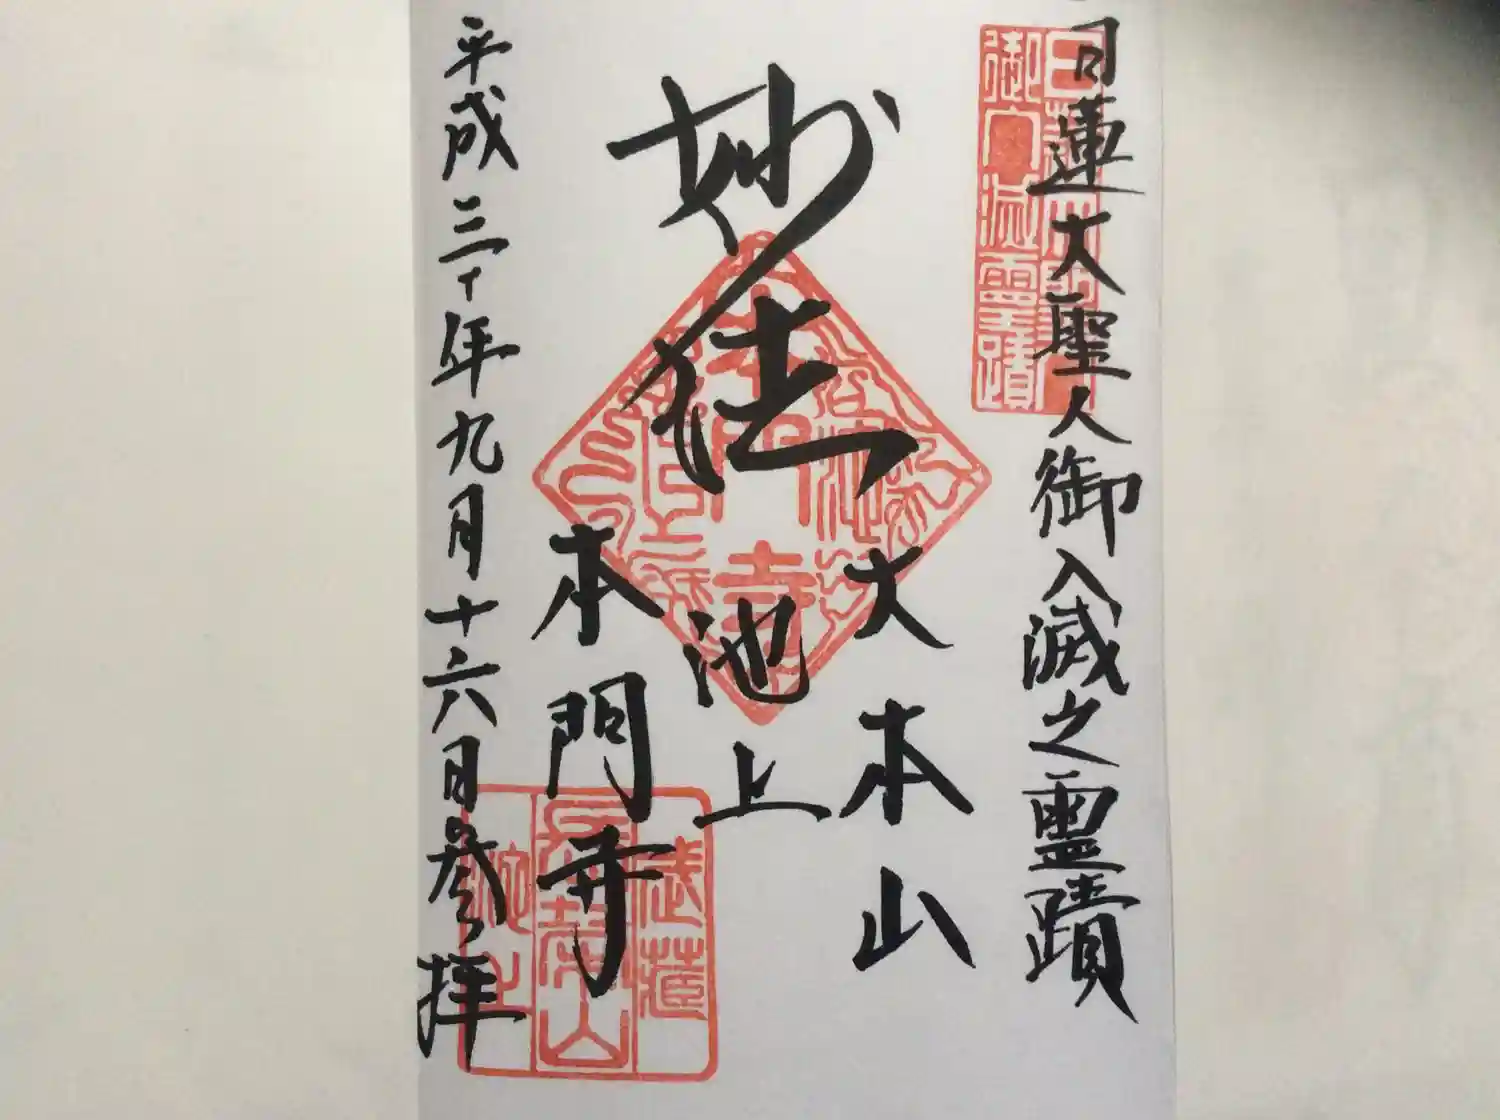 日蓮大聖人御入滅之霊蹟
妙法
大本山
池上
本門寺
平成三十年九月十六日参拝
御入滅霊蹟
武蔵
池上